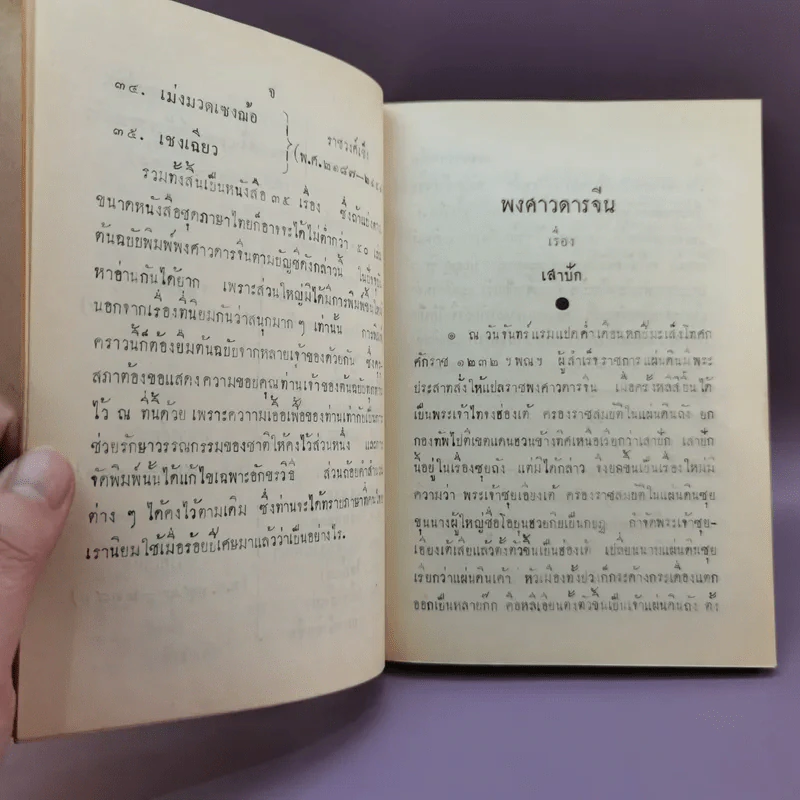 จ
๓๔. เม่งมวดเซงฌ้อ
๓๕. เชงเฉียว
ราชวงศ์เช็ง
(พ.ศ.๒๑๘๗—
รวมทั้งสิ้นเป็นหนังสือ ๓๕ เรื่อง ซึ่งถ้าแบ่งตาม
ขนาดหนังสือชุดภาษาไทยก็อาจจะได้ไม่ต่ำกว่า ๕๐ เล่ม
ต้นฉบับพิมพ์พงศาวดารจีนตามบัญชีดังกล่าวนี้ ในปัจจุบัน
หาอ่านกันได้ยาก เพราะส่วนใหญ่มิได้มีการพิมพ์ขึ้นใหม่
นอกจากเรื่องที่นิยมกันว่าสนุกมาก ๆ เท่านั้น การพิมพ์
คราวนี้ก็ต้องยืมต้นฉบับจากหลายเจ้าของด้วยกัน ซึ่งคุรุ
สภาต้องขอแสดงความขอบคุณท่านเจ้าของต้นฉบับทุกท่าน
ไว้ ณ ที่นี้ด้วย เพราะความเอื้อเฟื้อของท่านเท่ากับเป็นการ
ช่วยรักษาวรรณกรรมของชาติให้คงไว้ส่วนหนึ่ง และการ
จัดพิมพ์นั้นได้แก้ไขเฉพาะอักขรวิธี ส่วนถ้อยคำสำนวน
ต่าง ๆ ได้คงไว้ตามเดิม ซึ่งท่านจะได้ทราบภาษาที่คนไทย
เรานิยมใช้เมื่อร้อยปีเศษมาแล้วว่าเป็นอย่างไร.
พงศาวดารจีน
เรื่อง
เสาปัก
๏ ณ วันจันทร์แรมแปดค่ำเดือนหกปีมะเส็งโทศก
ศักราช ๑๒๓๒ ฯพณฯ ผู้สำเร็จราชการแผ่นดินมีพระ
ประสาทสั่งให้แปลราชพงศาวดารจีน เมื่อครั้งหลีสิบิ๋นได้
เป็นพระเจ้าไทจงฮ่องเต้ ครองราชสมบัติในแผ่นดินถัง ยก
กองทัพไปตีเขตแดนฮวนข้างทิศเหนือเรียกว่าเสาปัก เสาปัก
นี้อยู่ในเรื่องซุยถัง แต่มิได้กล่าว จึงยกขึ้นเป็นเรื่องใหม่มี
ความว่า พระเจ้าซุยเอี๋ยงเต้ ครองราชสมบัติในแผ่นดินซุย
ขุนนางผู้ใหญ่ชื่อโอยุนฮวยกิบเป็นกบฏ กำจัดพระเจ้าซุย-
เอี๋ยงเต้เสียแล้วตั้งตัวขึ้นเป็นฮ่องเต้ เปลี่ยนนามแผ่นดินซุย
เรียกว่าแผ่นดินเค้า หัวเมืองทั้งปวงก็กระด้างกระเดื่องแตก
ออกเป็นหลายก๊ก คือหลีเอียนตั้งตัวขึ้นเป็นเจ้าแผ่นดินถัง ตั้ง